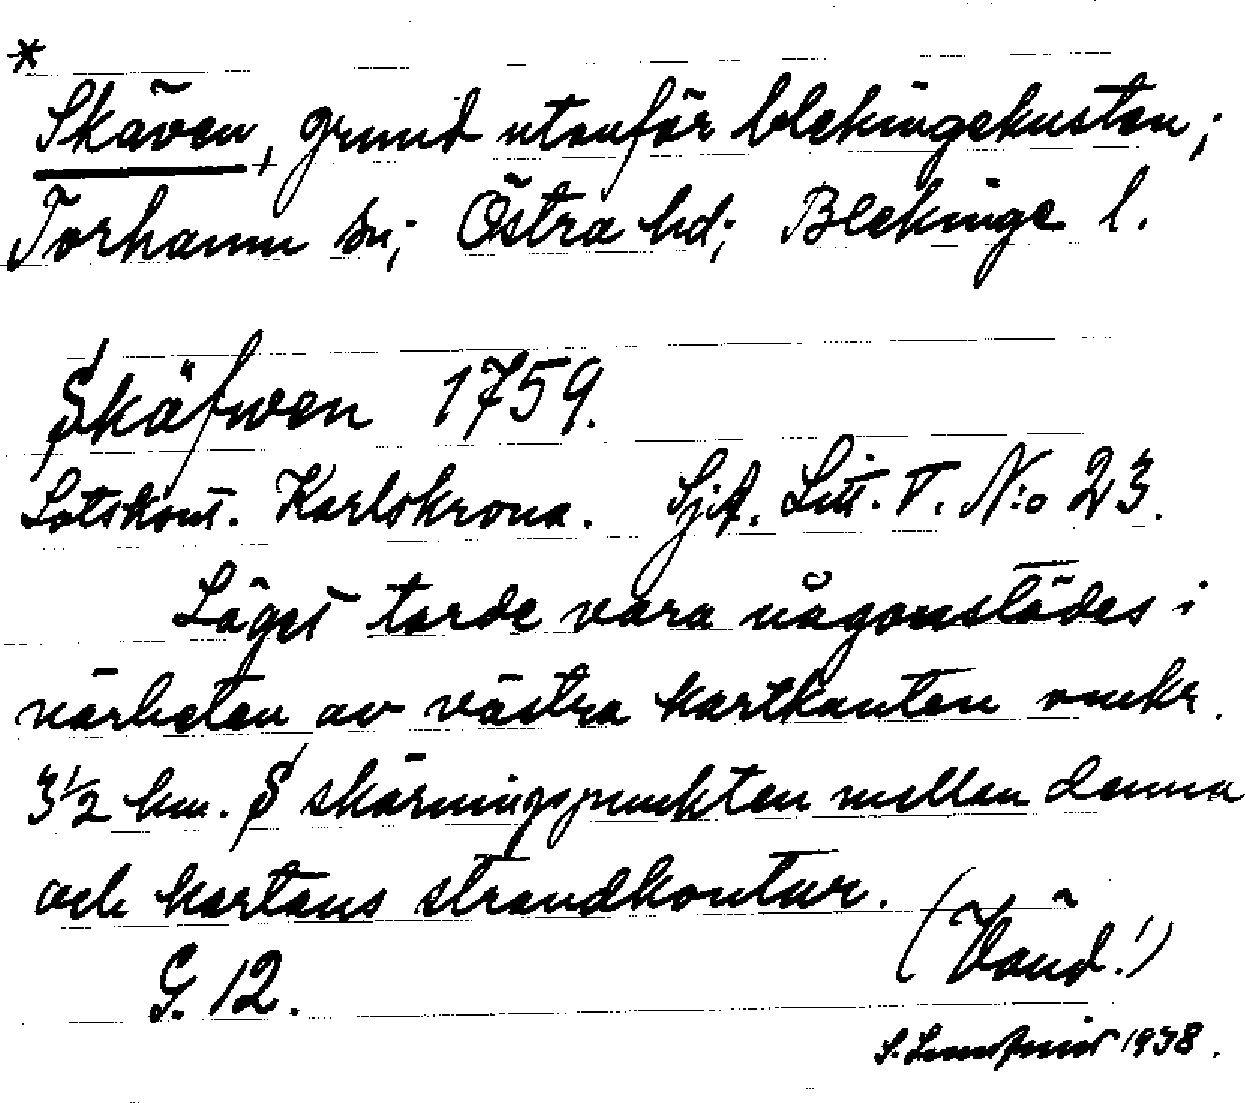 *
Skäven, grund utanför blekingekusten;
Torhamn sn; Östra hd; Blekinge l.
Skäfwen 1759.
Lotskont. Karlskrona. Sjöf. Litt. V. N:o 23.
Läget torde vara någonstädes i
närheten av västra kartkanten omkr.
3½ km. S skärningspunkten mellan denna
och kartans strandkontur.
(Vänd!)
G. 12.
1938.